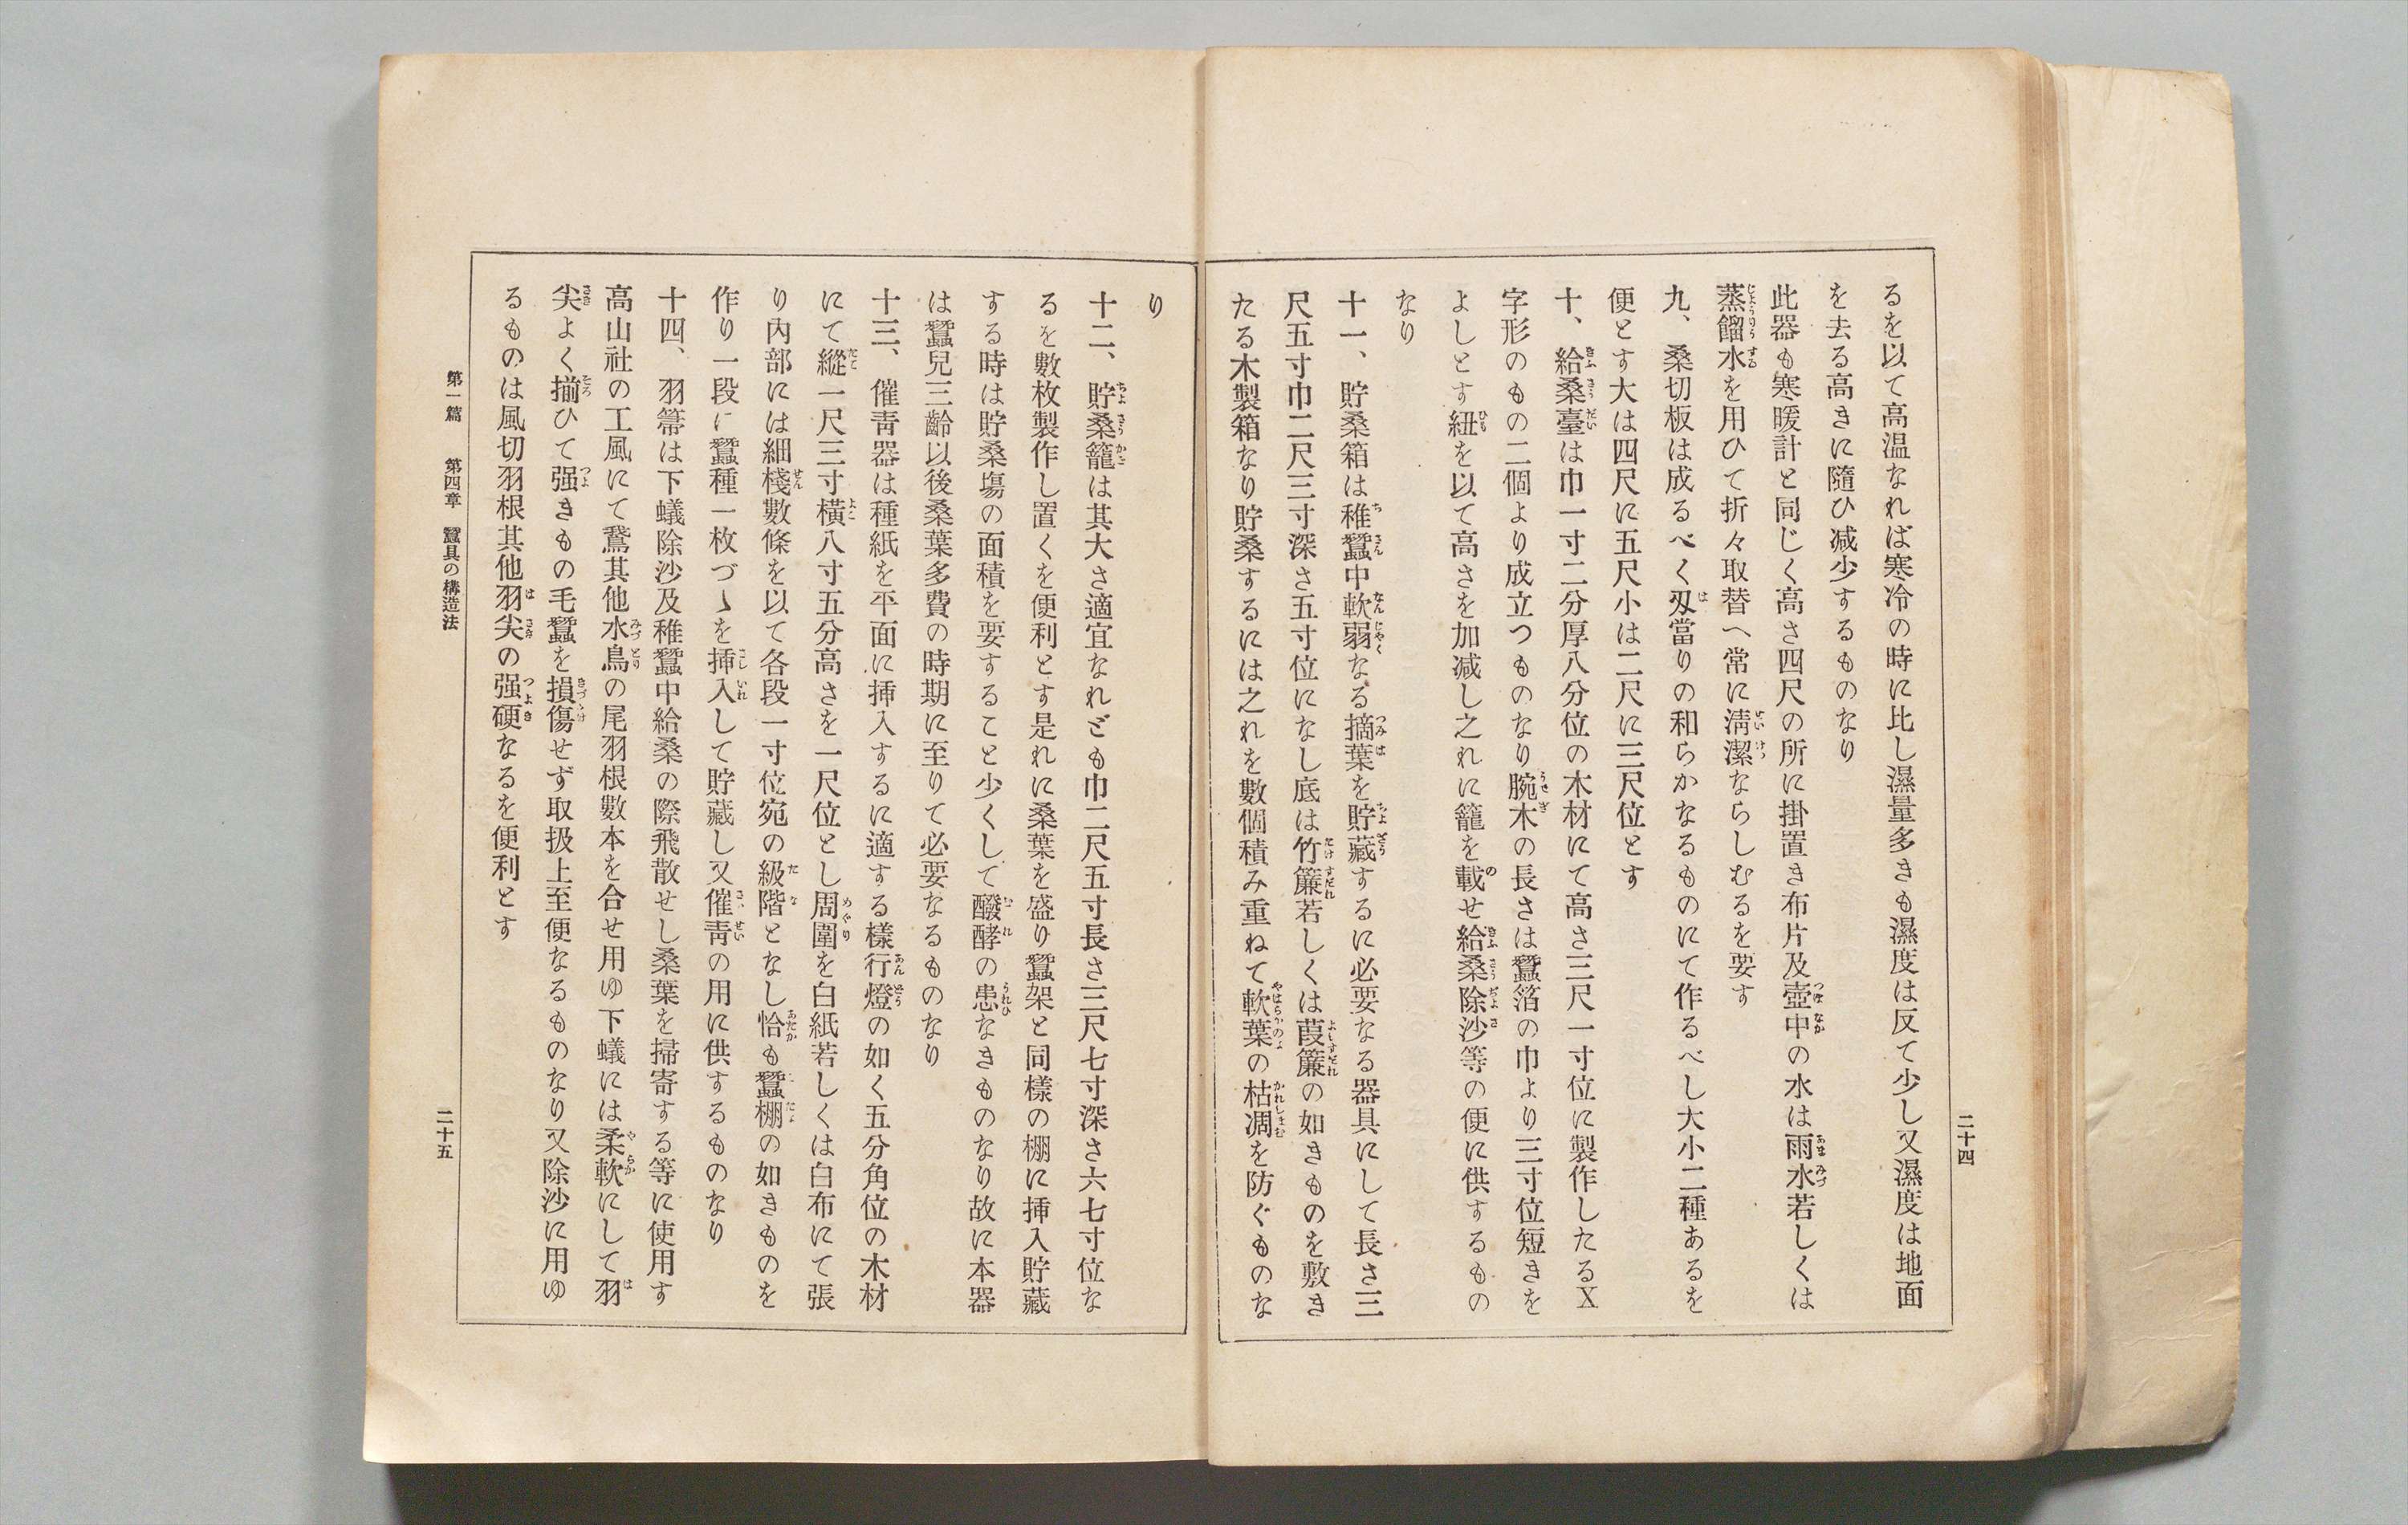 るを以て高温なれば寒冷の時に比し濕量多きも濕度は反て少し又濕度は地面
を去る高きに隨ひ減少するものなり
此器も寒暖計と同じく高さ四尺の所に掛置き布片及壺中の水は雨水若しくは
蒸餾水を用ひて折々取替へ常に淸潔ならしむるを要す
九、桑切板は成るべく刄當りの和らかなるものにて作るべし大小二種あるを
便とす大は四尺に五尺小は二尺に三尺位とす
十、給桑臺は巾一寸二分厚八分位の木材にて高さ三尺一寸位に製作したるX
字形のもの二個より成立つものなり腕木の長さは蠶箔の巾より三寸位短きを
よしとす紐を以て高さを加减し之れに籠を載せ給桑除沙等の便に供するもの
なり
十一、貯桑箱は稚蠶中軟弱なる摘葉を貯藏するに必要なる器具にして長さ三
尺五寸巾二尺三寸深さ五寸位になし底は竹簾若しくは葭簾の如きものを敷き
たる木製箱なり貯桑するには之れを數個積み重ねて軟葉の枯凋を防ぐものな
二十四
り
十二、貯桑籠は其大さ適宜なれども巾二尺五寸長さ三尺七寸深さ六七寸位な
るを數枚製作し置くを便利とす是れに桑葉を盛り蠶架と同樣の棚に挿入貯藏
する時は貯桑塲の面積を要すること少くして醱酵の患なきものなり故に本器
は蠶兒三齡以後桑葉多費の時期に至りて必要なるものなり
十三、催靑器は種紙を平面に挿入するに適する樣行燈の如く五分角位の木材
にて縱一尺三寸橫八寸五分高さを一尺位とし周圍を白紙若しくは白布にて張
り內部には細棧數條を以て各段一寸位宛の級階となし恰も蠶棚の如きものを
作り一段に蠶種一枚づゝを挿入して貯藏し又催靑の用に供するものなり
十四、羽箒は下蟻除沙及稚蠶中給桑の際飛散せし桑葉を掃寄する等に使用す
高山社の工風にて鵞其他水鳥の尾羽根數本を合せ用ゆ下蟻には柔軟にして羽
尖よく揃ひて强きもの毛蠶を損傷せず取扱上至便なるものなり又除沙に用ゆ
るものは風切羽根其他羽尖の强硬なるを便利とす
第一篇　第四章　蠶具の構造法
二十五